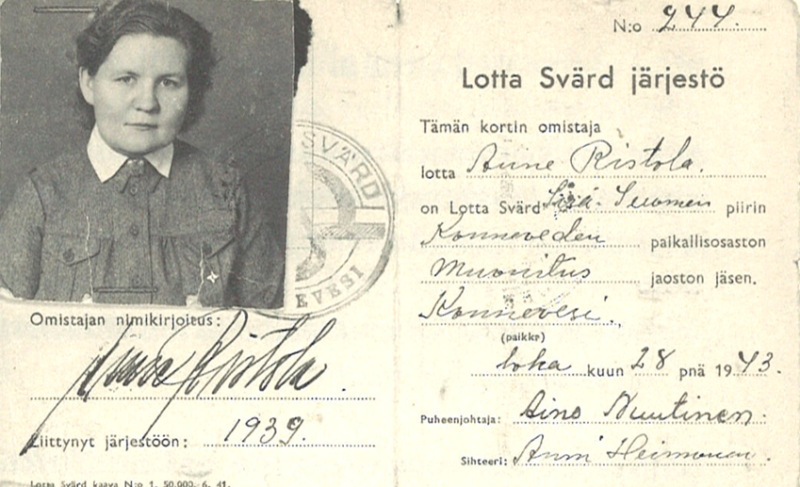 SVÄRD
EVESI
Omistajan nimikirjoitus:
Anne Ristola.
Liittynyt järjestöön: 1939.
Lotta Svärd kaava N:o 1. 50.000. 6. 41.
N:o 244.
Lotta Svärd järjestö
Tämän kortin omistaja
lotta Anne Ristola.
on Lotta Svärd Sisä-Suomen piirin
Konneveden paikallisosaston
Muonitus jaoston jäsen.
Konnevesi.
(paikka)
loka kuun 28 pnä 1943.
Puheenjohtaja: Aino Nuutinen.
Sihteeri: Anni Heimonen.